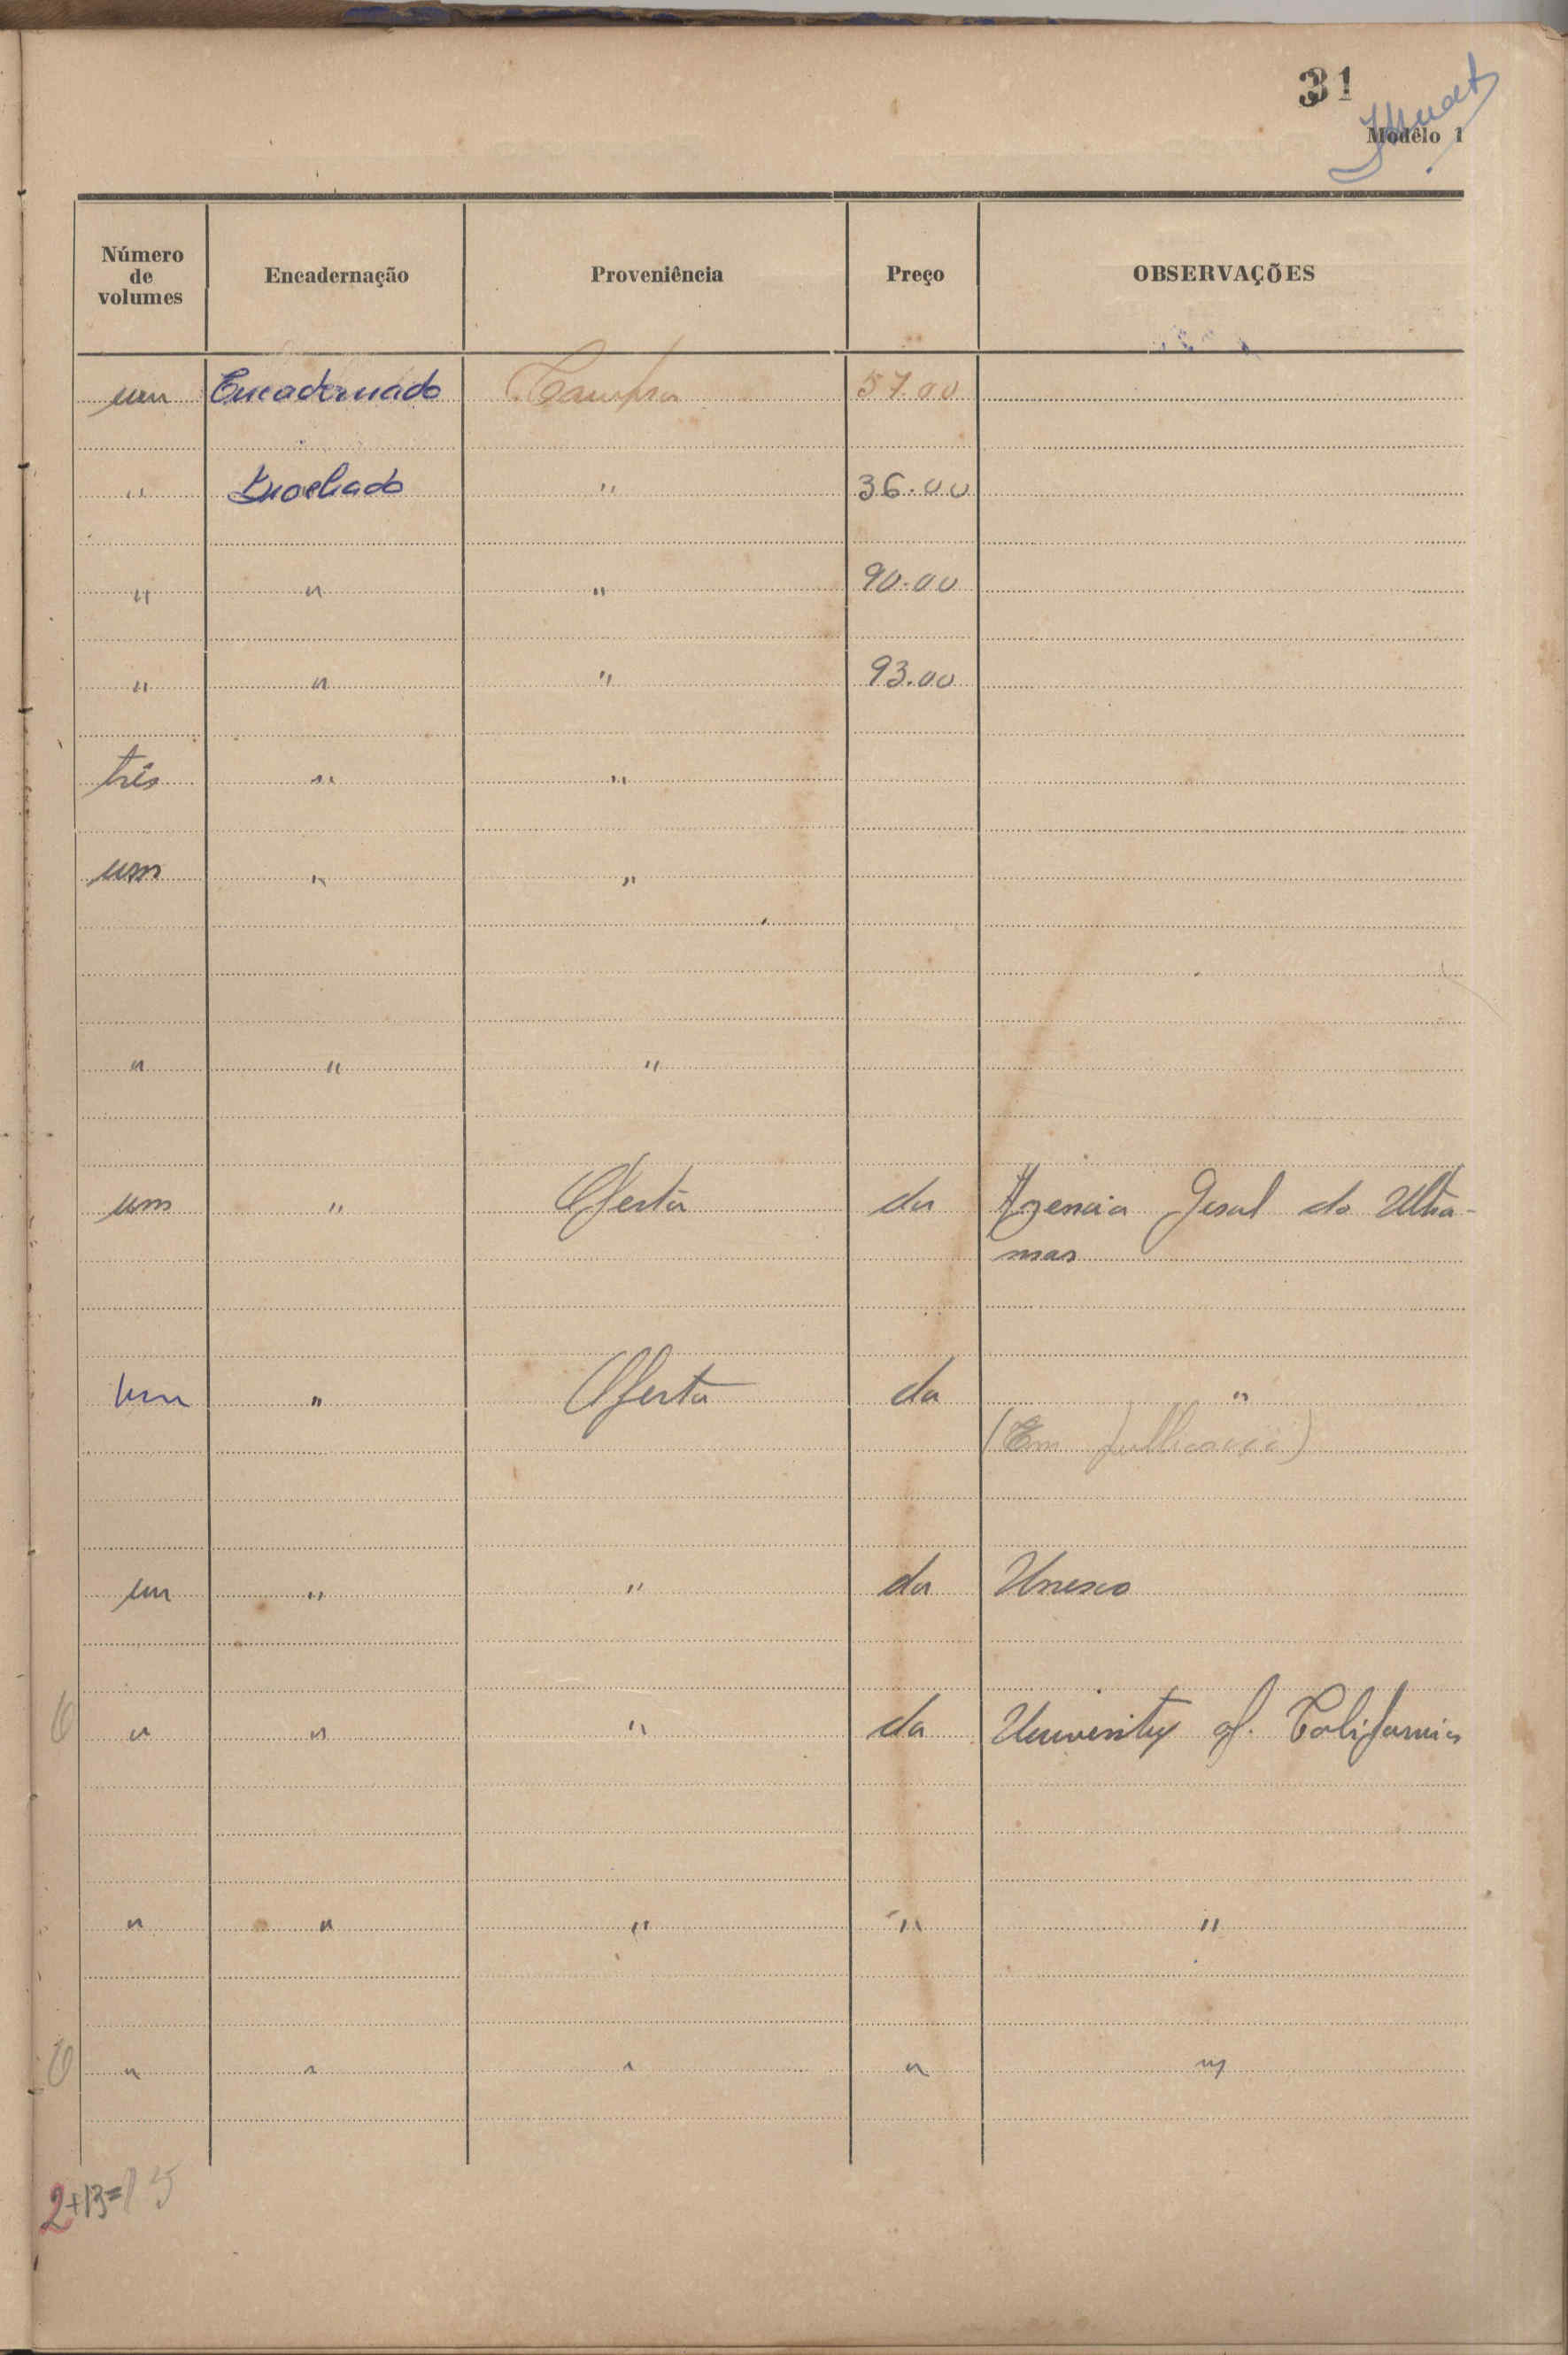 31
Modêlo 1
Número de volumes Encadernação Proveniência Preço OBSERVAÇÕES
um Encadernado Compra 57.00
" Brochado " 36.00
" " " 90.00
" " " 93.00
três " "
um " "
" " "
um " Oferta da Agencia Geral do Ultra-
mar
um " Oferta da "
(Em publicação)
um " " da Unesco
" " " da University of. California
" " " " "
" " " " "
2+13=15